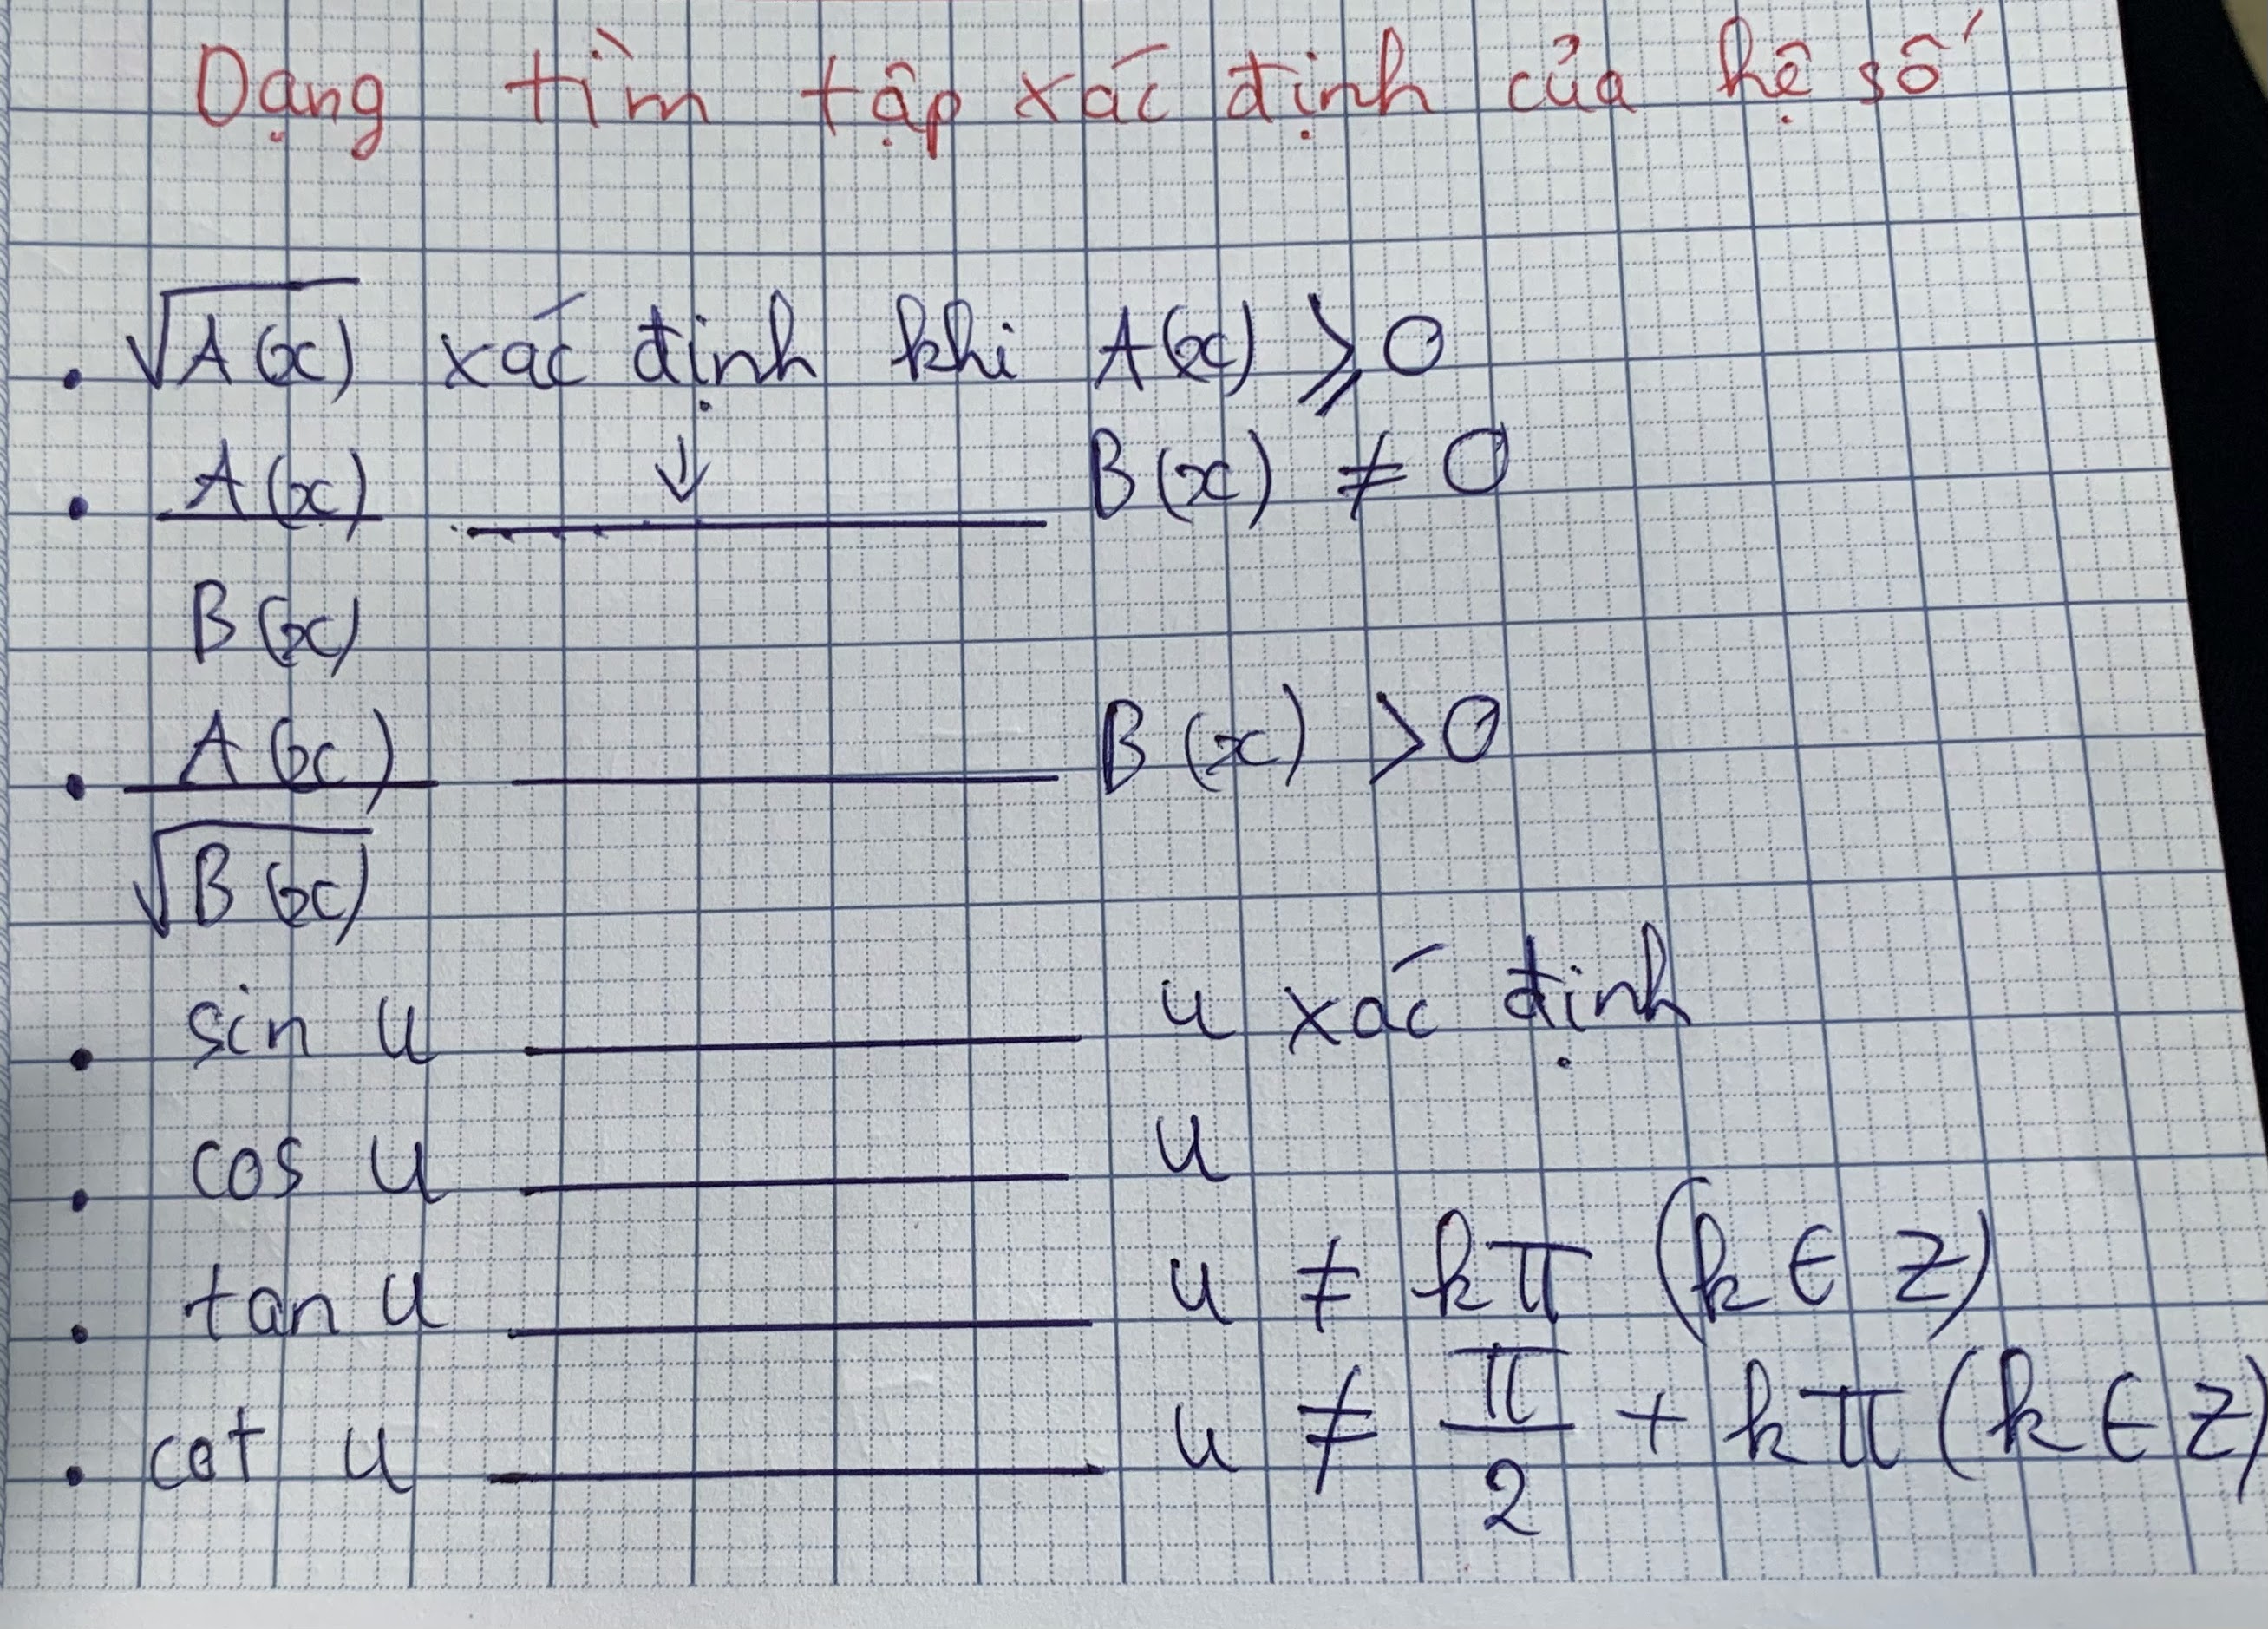 Dạng tìm tập xác định của hệ số
• √A(x) xác định khi A(x) ⩾ 0
• A(x) ↓ B(x) ≠ 0
B(x)
• A(x) B(x) > 0
√B(x)
• sin u u xác định
• cos u u
• tan u u ≠ kπ (k ∈ Z)
• cot u u ≠ π/2 + kπ (k ∈ Z)